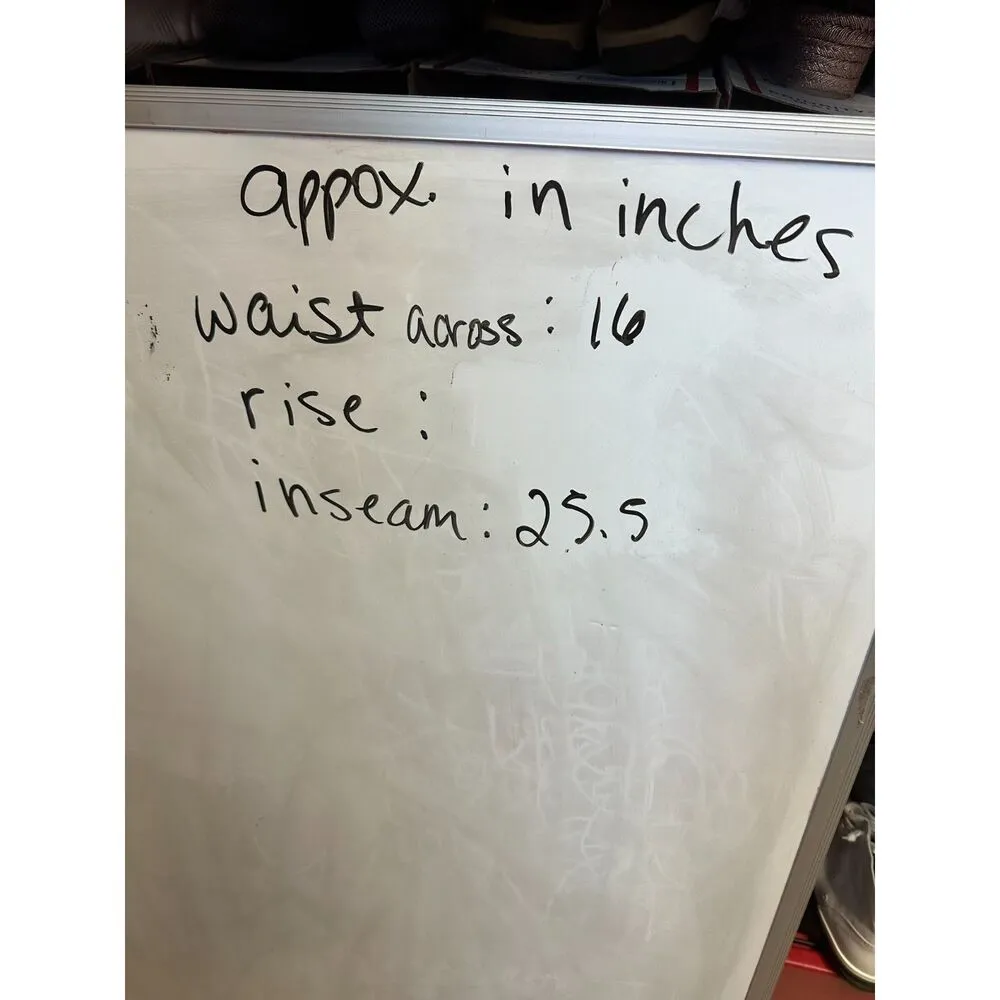 appox. in inches
waist across: 16
rise :
inseam: 25.5